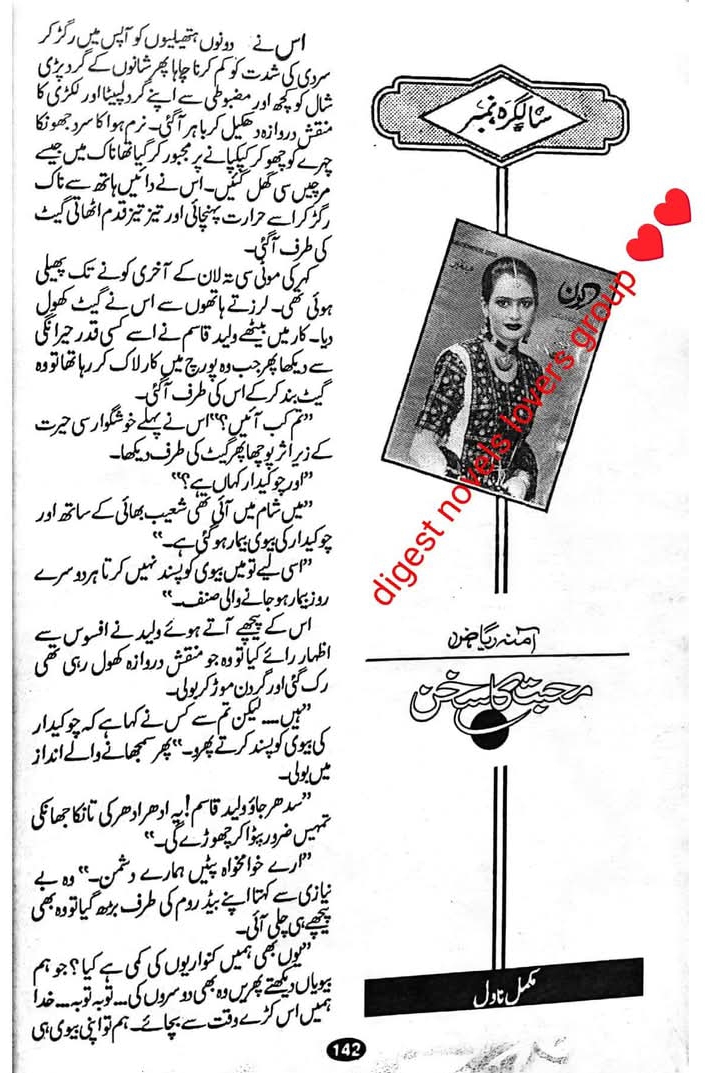 سالگرہ نمبر
کرن
digest novels lovers group
آمنہ ریاض
محبت کا سخن
مکمل ناول
اس نے دونوں ہتھیلیوں کو آپس میں رگڑ کر
سردی کی شدت کو کم کرنا چاہا پھر شانوں کے گرد پڑی
شال کو کچھ اور مضبوطی سے اپنے گرد لپیٹا اور لکڑی کا
منقش دروازہ دھکیل کر باہر آگئی۔ نرم ہوا کا سرد جھونکا
چہرے کو چھو کر کپکپانے پر مجبور کر گیا تھا ناک میں جیسے
مرچیں سی گھل گئیں۔ اس نے دائیں ہاتھ سے ناک
رگڑ کر اسے حرارت پہنچائی اور تیز تیز قدم اٹھاتی گیٹ
کی طرف آگئی۔
کہر کی موٹی سی تہ لان کے آخری کونے تک پھیلی
ہوئی تھی۔ لرزتے ہاتھوں سے اس نے گیٹ کھول
دیا۔ کار میں بیٹھے ولید قاسم نے اسے کسی قدر حیرانگی
سے دیکھا پھر جب وہ پورچ میں کار لاک کر رہا تھا تو وہ
گیٹ بند کر کے اس کی طرف آگئی۔
”تم کب آئیں؟“ اس نے پہلے خوشگوار سی حیرت
کے زیر اثر پوچھا پھر گیٹ کی طرف دیکھا۔
”اور چوکیدار کہاں ہے؟“
”میں شام میں آئی تھی شعیب بھائی کے ساتھ اور
چوکیدار کی بیوی بیمار ہو گئی ہے۔“
”اسی لیے تو میں بیوی کو پسند نہیں کرتا ہر دوسرے
روز بیمار ہو جانے والی صنف۔“
اس کے پیچھے آتے ہوئے ولید نے افسوس سے
اظہار رائے کیا تو وہ جو منقش دروازہ کھول رہی تھی
رک گئی اور گردن موڑ کر بولی۔
”ہیں.... لیکن تم سے کس نے کہا ہے کہ چوکیدار
کی بیوی کو پسند کرتے پھرو۔“ پھر سمجھانے والے انداز
میں بولی۔
”سدھر جاؤ ولید قاسم! یہ ادھر ادھر کی تانکا جھانکی
تمہیں ضرور پٹوا کر چھوڑے گی۔“
”ارے خوامخواہ پٹیں ہمارے دشمن۔“ وہ بے
نیازی سے کہتا اپنے بیڈ روم کی طرف بڑھ گیا تو وہ بھی
پیچھے ہی چلی آئی۔
”یوں بھی ہمیں کنواریوں کی کمی ہے کیا؟ جو ہم
بیویاں دیکھتے پھریں وہ بھی دوسروں کی... توبہ توبہ... خدا
ہمیں اس کڑے وقت سے بچائے۔ ہم تو اپنی بیوی ہی
142